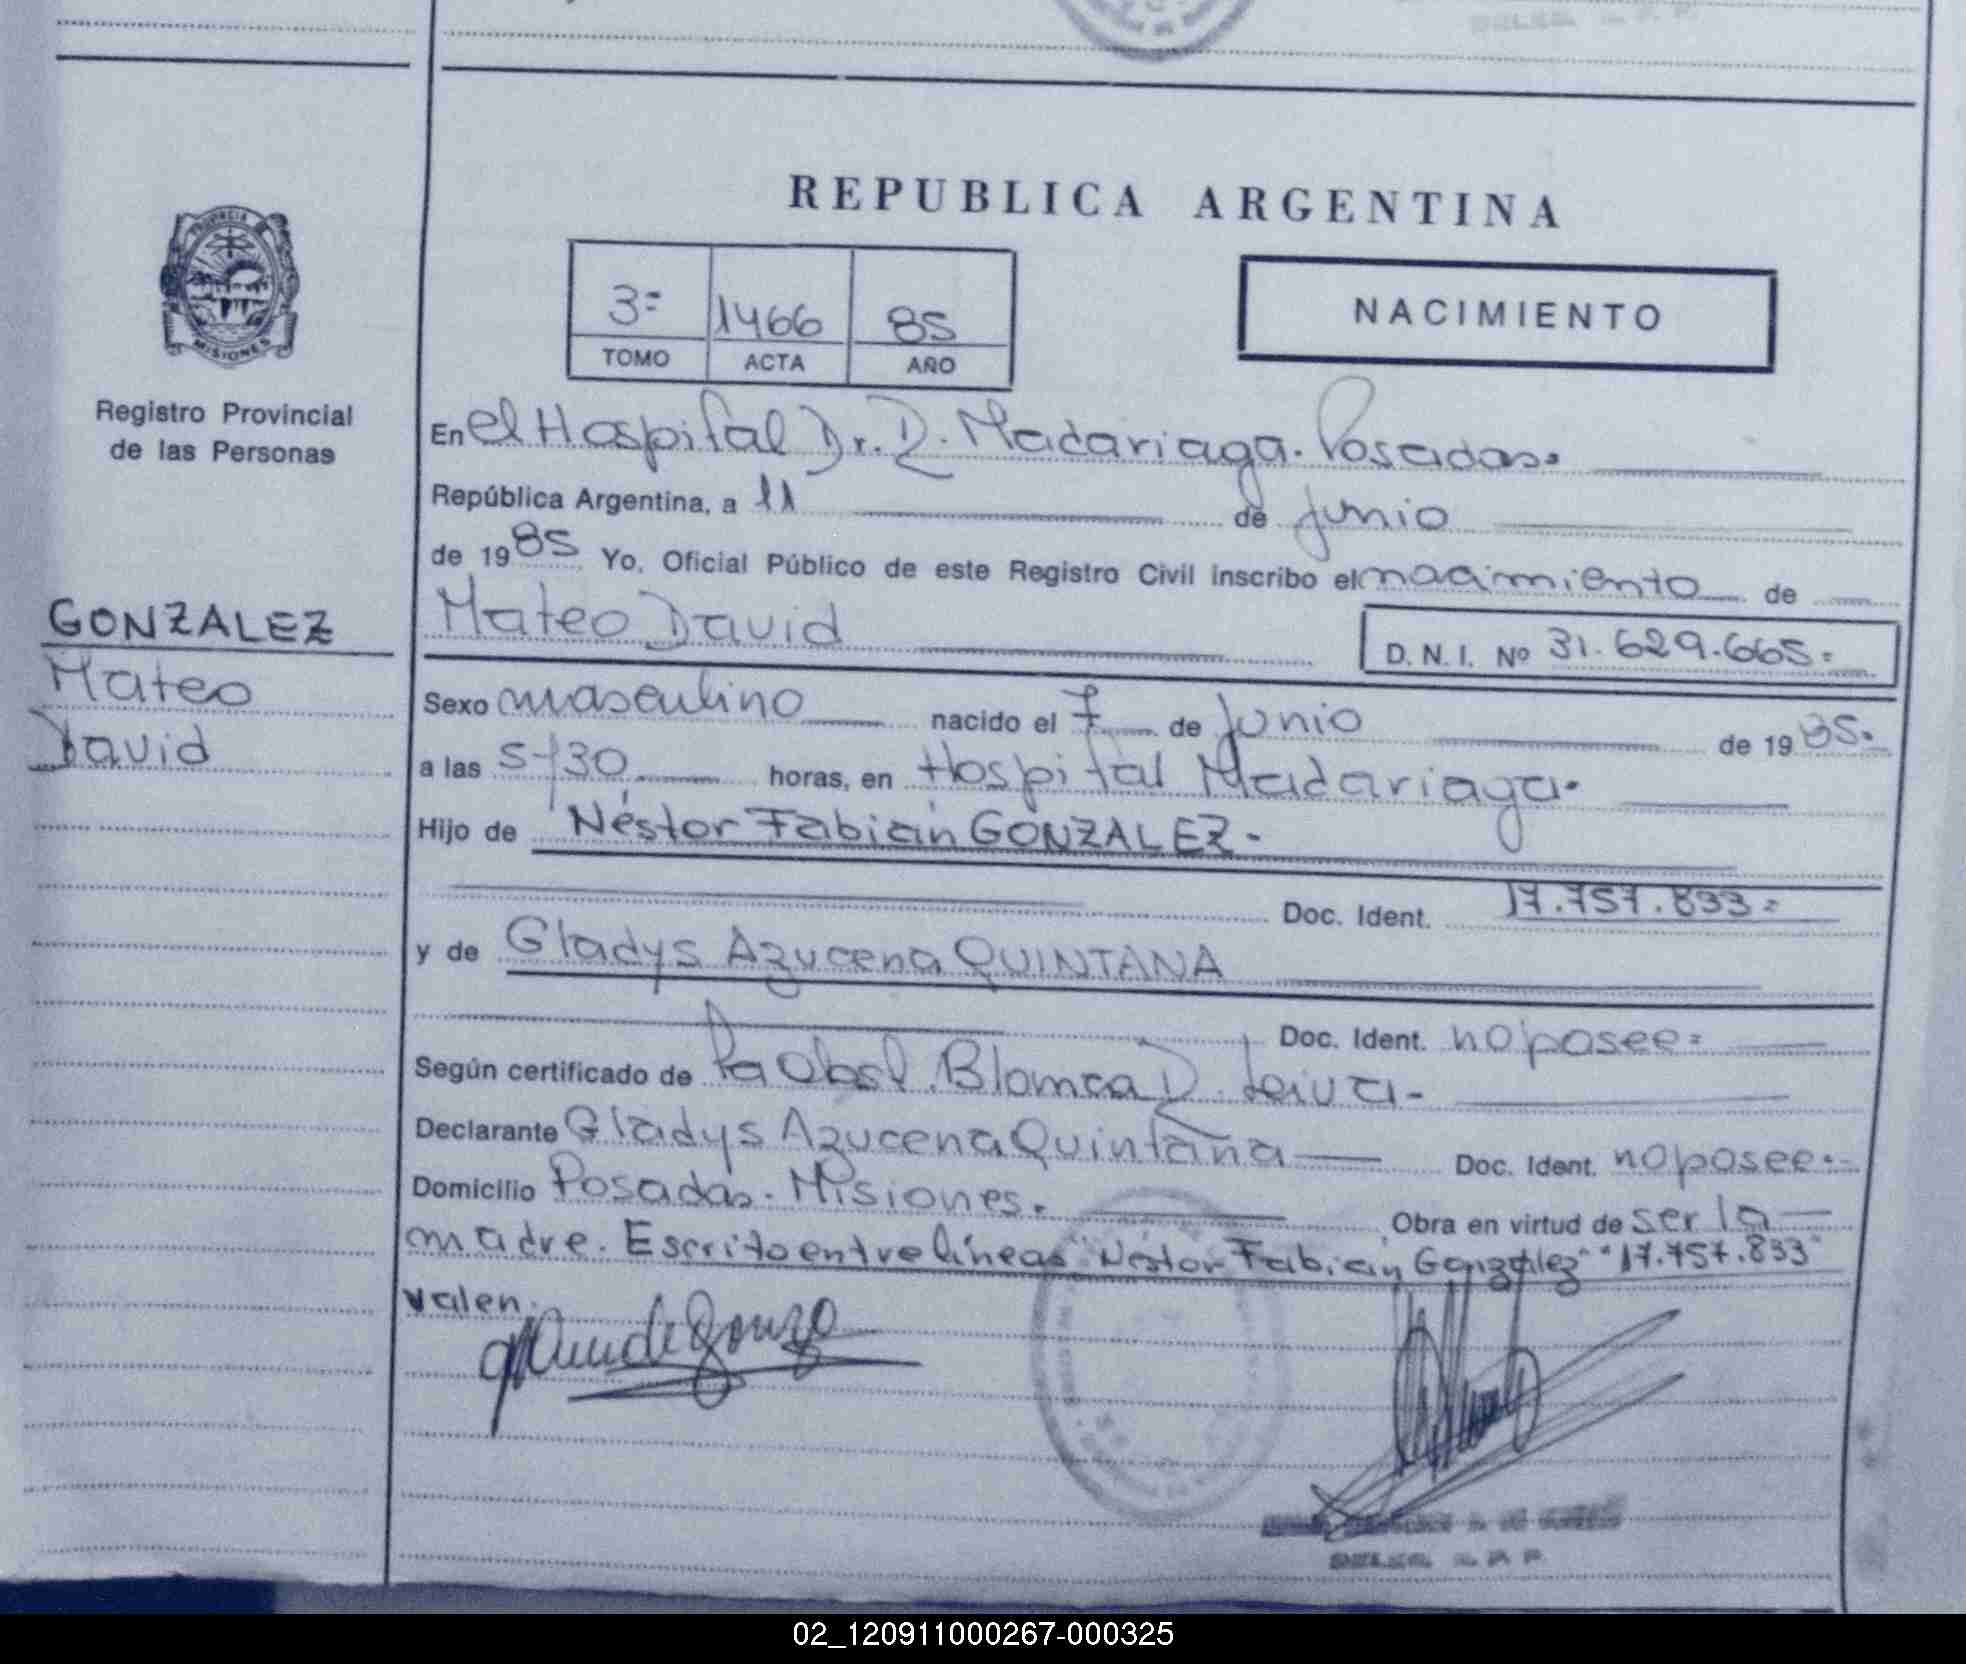 REPUBLICA ARGENTINA
PROVINCIA DE
MISIONES
Registro Provincial
de las Personas
GONZALEZ
Mateo
David
3º
1466
85
TOMO
ACTA
AÑO
NACIMIENTO
En el Hospital Dr. R. Madariaga. Posadas.
República Argentina, a 11 de Junio
de 1985 Yo, Oficial Público de este Registro Civil inscribo el nacimiento de
Mateo David
D. N. I. Nº 31.629.665=
Sexo masculino nacido el 7 de Junio de 1985.
a las 5/30 horas, en Hospital Madariaga.
Hijo de Néstor Fabián GONZALEZ.
Doc. Ident. 17.757.833=
y de Gladys Azucena QUINTANA
Doc. Ident. no posee=
Según certificado de Pa Obst. Blanca D. Leiva.
Declarante Gladys Azucena Quintana Doc. Ident. no posee.
Domicilio Posadas. Misiones. Obra en virtud de ser la
madre. Escrito entre líneas "Néstor Fabián González" "17.757.833"
valen.
02_120911000267-000325